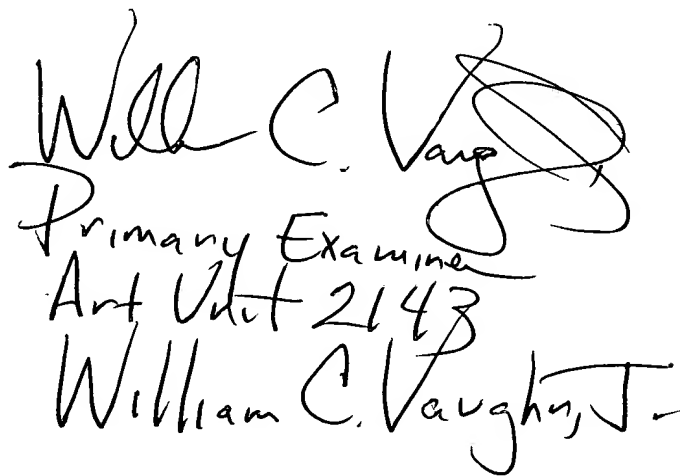 Will C. Vaug
Primary Examiner
Art Unit 2143
William C. Vaughn, Jr.